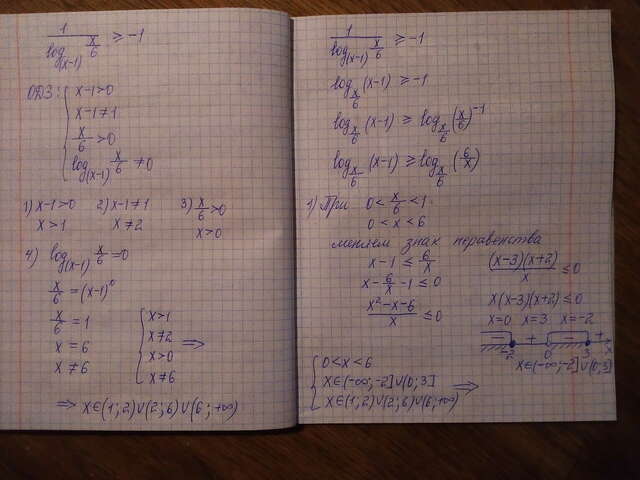 1/log_(x-1) x/6 ≥ -1
ОДЗ: { x-1>0
x-1≠1
x/6 >0
log_(x-1) x/6 ≠0
1) x-1>0 2) x-1≠1 3) x/6 >0
x>1 x≠2 x>0
4) log_(x-1) x/6 =0
x/6 = (x-1)^0
x/6 = 1
x = 6
x ≠ 6
{ x>1
x≠2 ⟹
x>0
x≠6
⟹ x∈(1;2)∪(2;6)∪(6;+∞)
1/log_(x-1) x/6 ≥ -1
log_x/6 (x-1) ≥ -1
log_x/6 (x-1) ≥ log_x/6 (x/6)^-1
log_x/6 (x-1) ≥ log_x/6 (6/x)
1) При 0 < x/6 < 1
0 < x < 6
меняем знак неравенства
x-1 ≤ 6/x
x - 6/x - 1 ≤ 0
x²-x-6/x ≤ 0
(x-3)(x+2)/x ≤ 0
x(x-3)(x+2) ≤ 0
x=0 x=3 x=-2
− + − +
-2 0 3 x
x∈(-∞;-2]∪(0;3]
{ 0<x<6
x∈(-∞;-2]∪(0;3] ⟹
x∈(1;2)∪(2;6)∪(6;+∞)